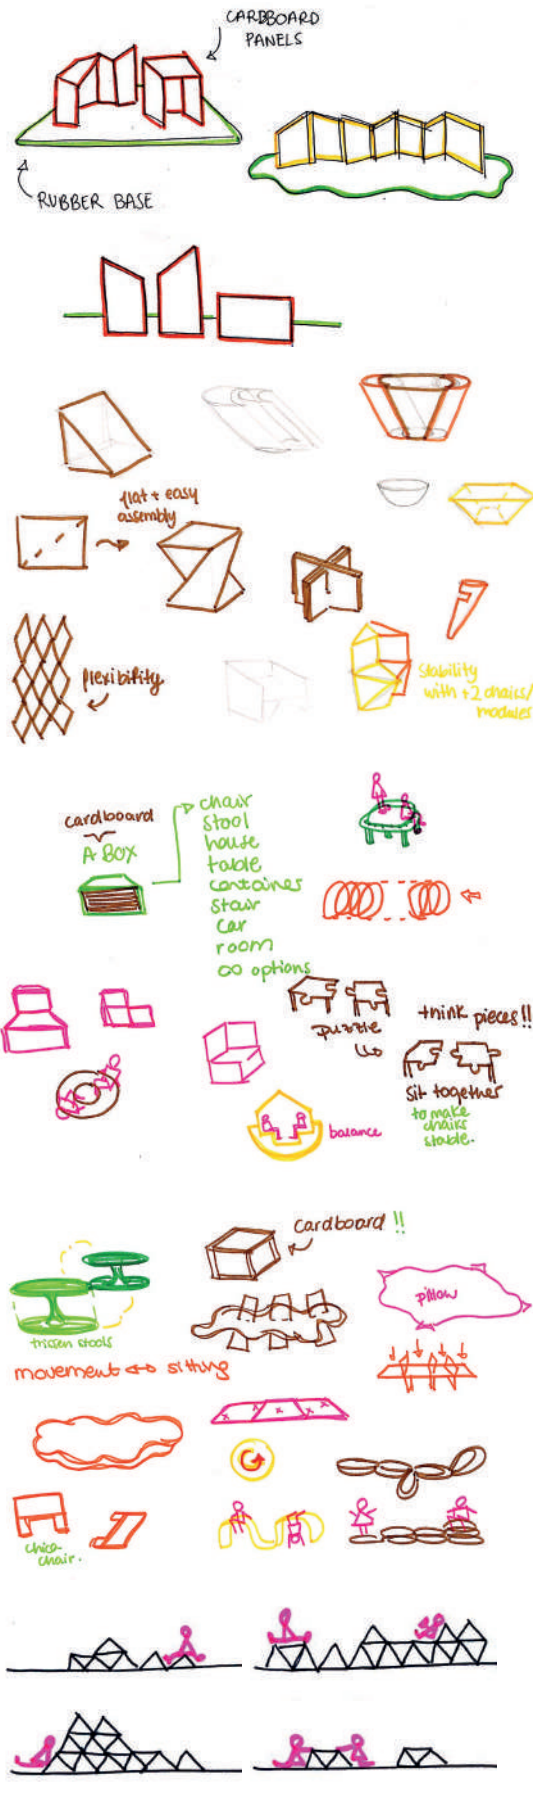 CARDBOARD
PANELS
RUBBER BASE
flat + easy
assembly
flexibility
Stability
with +2 chairs/
modules
cardboard
A BOX
chair
stool
house
table
container
stair
car
room
∞ options
puzzle
think pieces!!
sit together
to make
chairs
stable.
balance
cardboard !!
pillow
trissen stools
movement ↔ sitting
chica
chair.